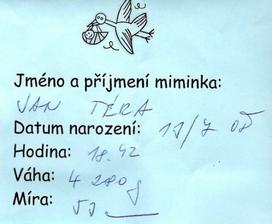 Jméno a příjmení miminka:
JAN TÉRA
Datum narození: 17/7 08
Hodina: 18.42
Váha: 4 280g
Míra: 53